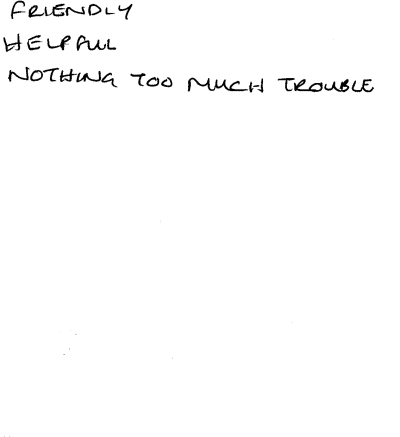 FRIENDLY
HELPFUL
NOTHING TOO MUCH TROUBLE